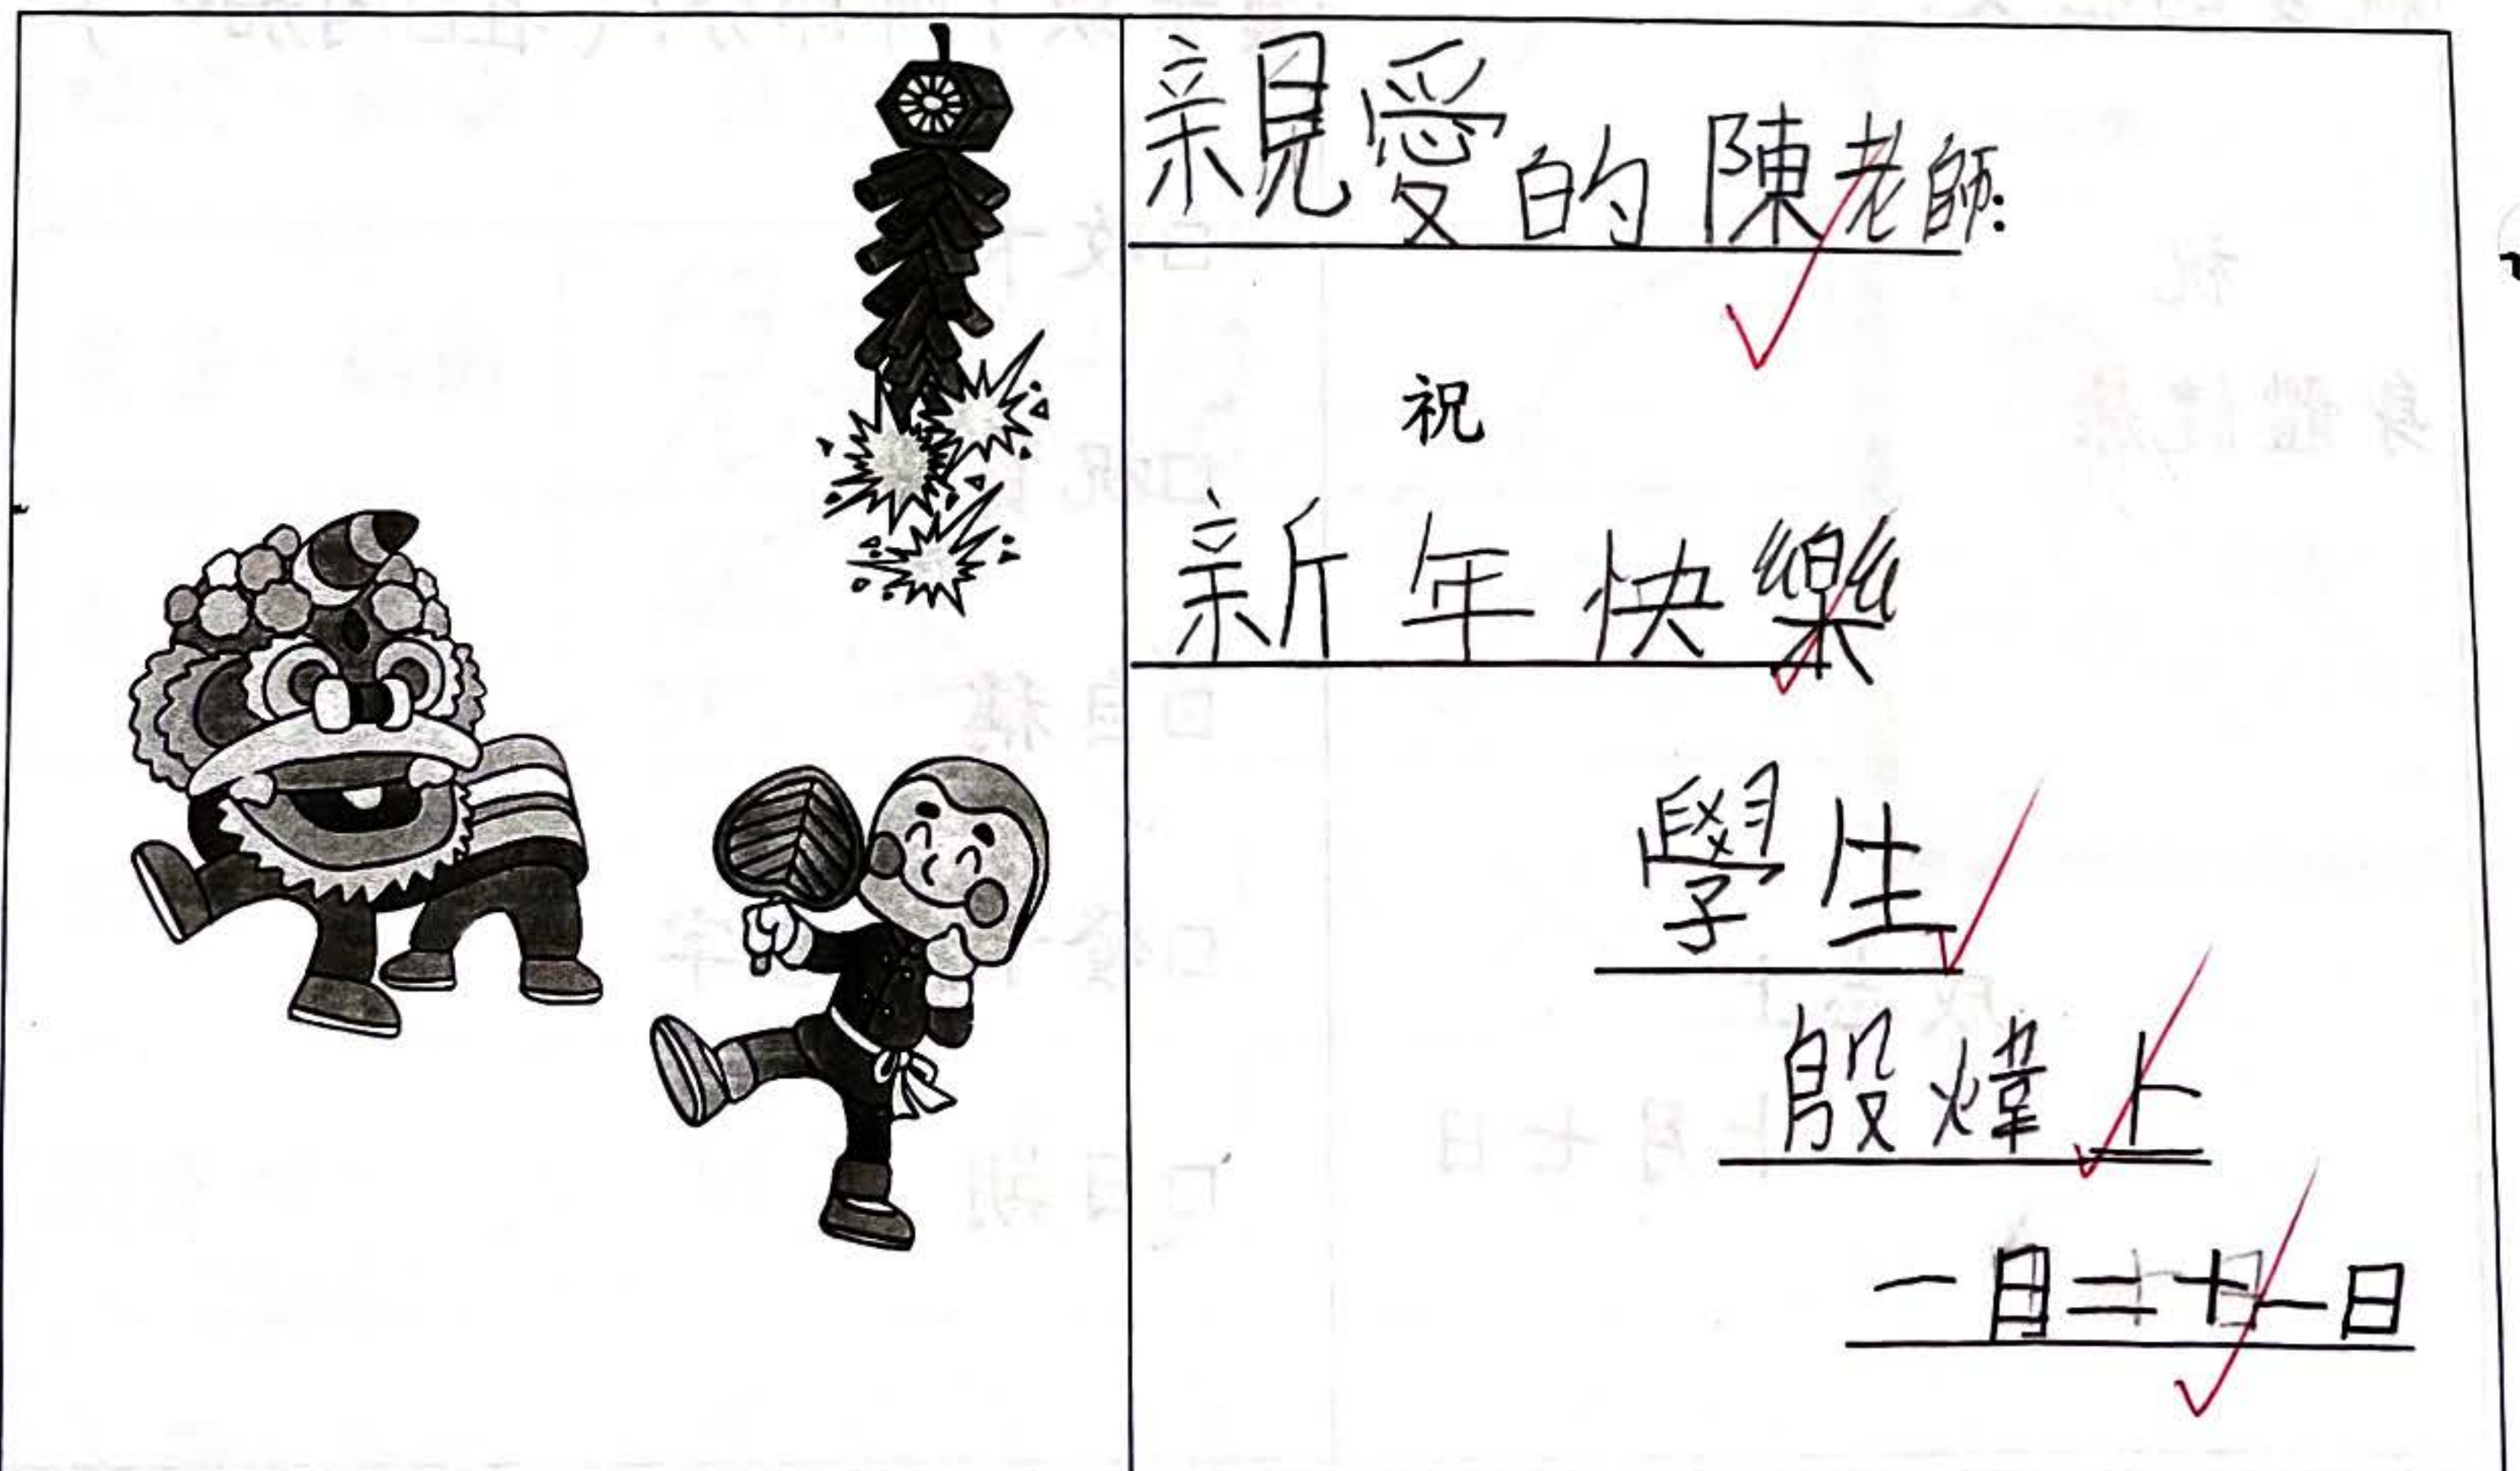 親愛的陳老師：
祝
新年快樂
學生
殷煒上
一月二十一日